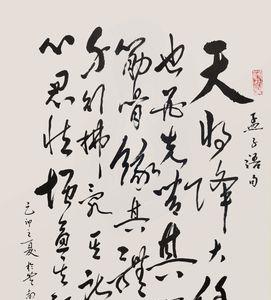 孟子语句
天将降大任
也必先苦其
筋骨餓其體
身行拂乱其所
心忍性增益其
己卯之夏於